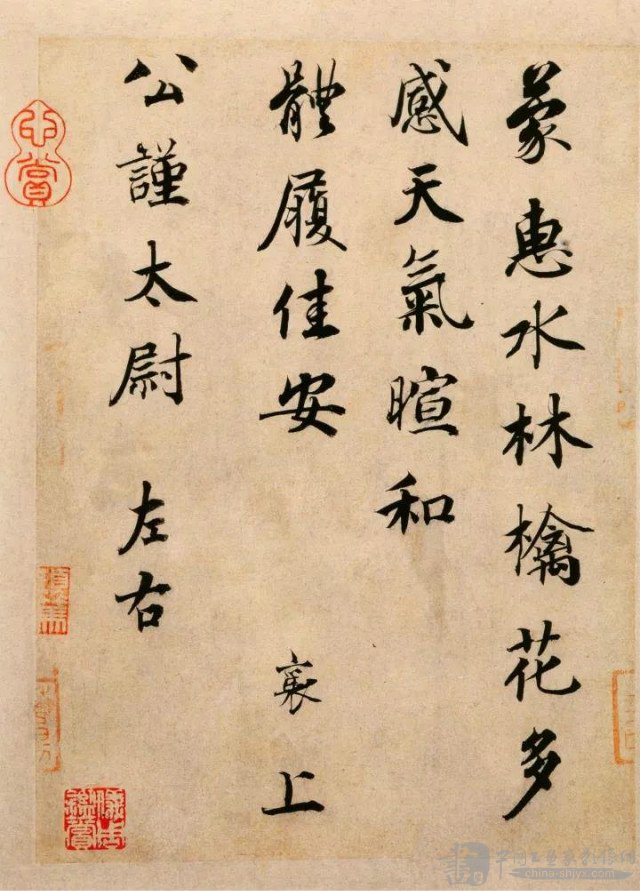 蒙惠水林檎花多
感天氣暄和
體履佳安
襄上
公謹太尉 左右
china-shjyx.com